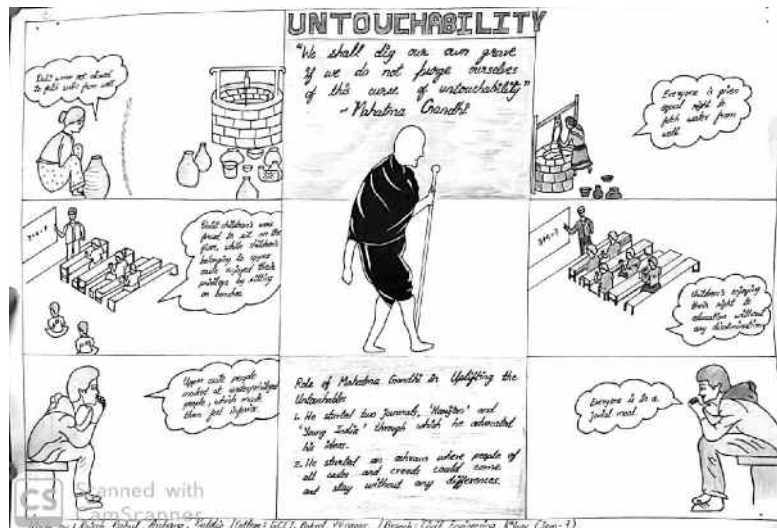 UNTOUCHABILITY
"We shall dig our own grave
if we do not purge ourselves
of this curse of untouchability"
- Mahatma Gandhi
Dalit were not allowed
to fetch water from well
Everyone is given
equal right to
fetch water from
well
Dalit children's were
forced to sit on the
floor, while children's
belonging to upper
caste enjoyed their
privilege by sitting
on benches
Children's enjoying
their right to
education without
any discrimination
Upper caste people
mocked at underprivileged
people, which made
them feel inferior.
Role of Mahatma Gandhi in Uplifting the
Untouchables
1. He started two journals, 'Harijan' and
'Young India' through which he advocated
his ideas.
2. He started an ashram where people of
all castes and creeds could come
and stay without any differences.
Everyone is in a
jovial mood
CS Scanned with
CamScanner